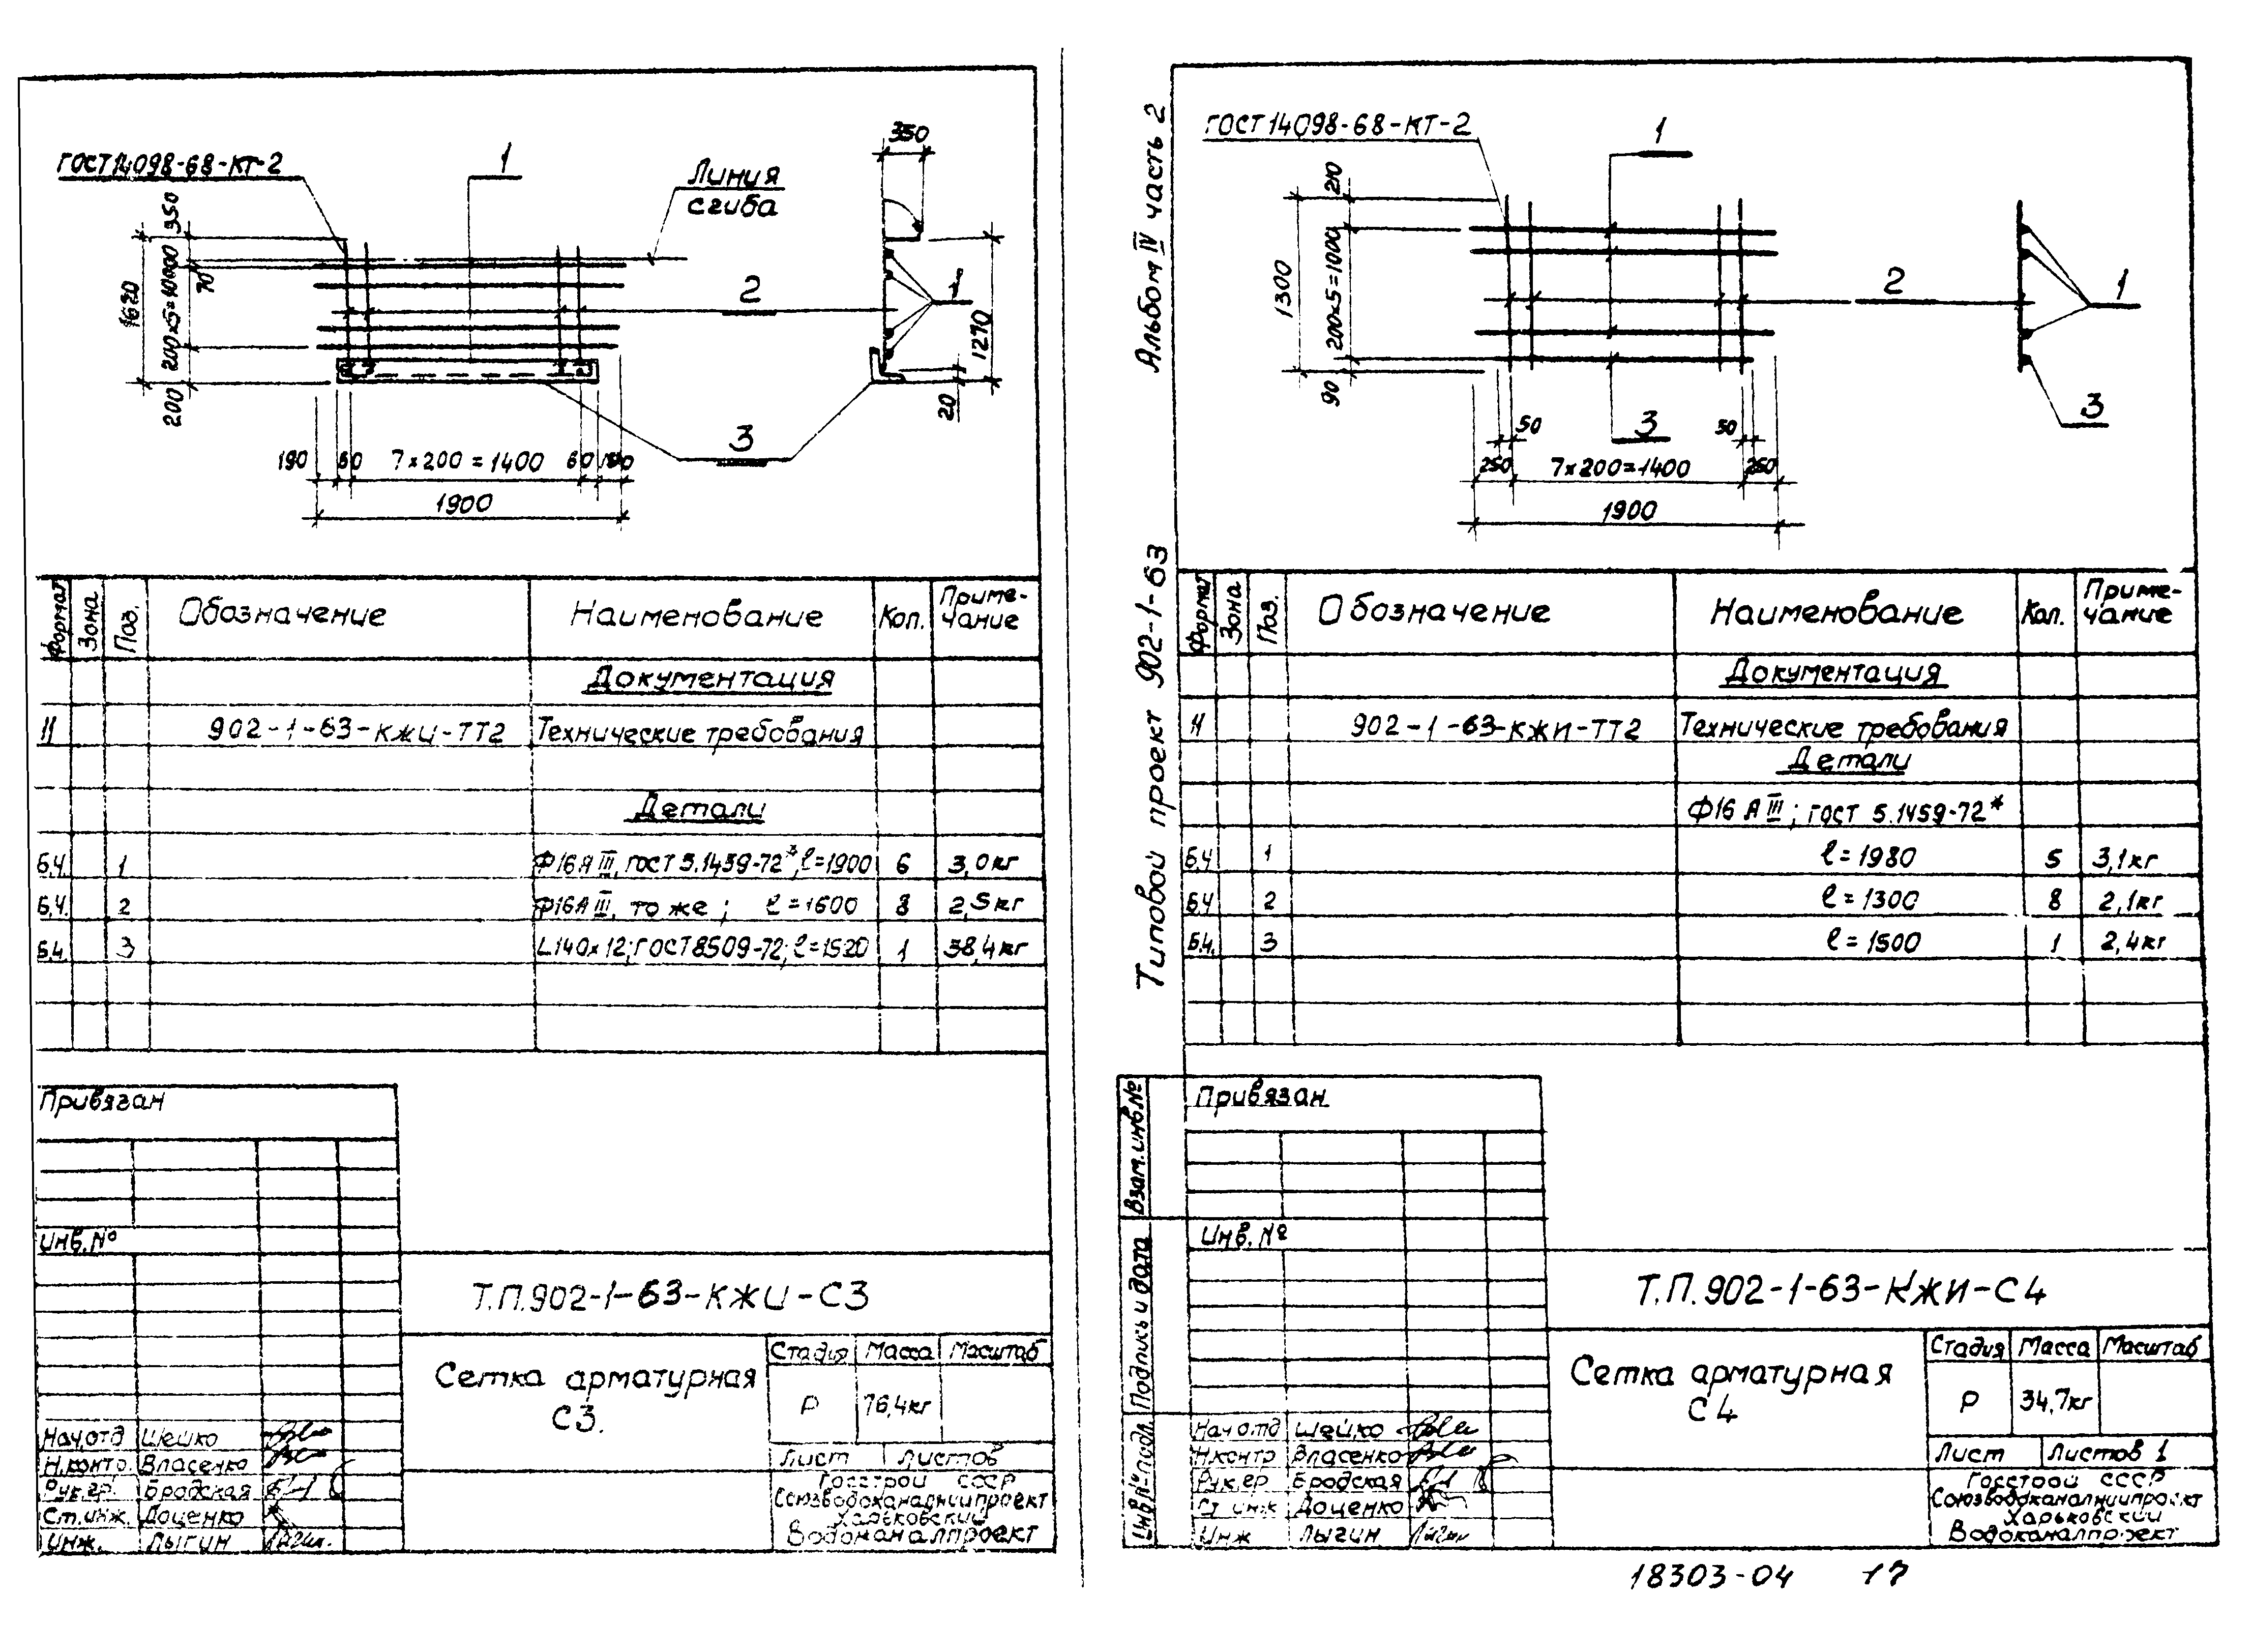 ГОСТ 14098-68-КТ-2
1
Линия
сгиба
350
350
1620
200×5=1000
70
200
2
1
1270
20
3
190
60
7×200=1400
60
1900
Формат
Зона
Поз.
Обозначение
Наименование
Кол.
Приме-
чание
Документация
11
902-1-63-КЖИ-ТТ2
Технические требования
Детали
Б.Ч. 1 Ф16АIII, ГОСТ 5.1459-72*, ℓ=1900 6 3,0кг
Б.Ч. 2 Ф16АIII, то же; ℓ=1600 8 2,5кг
Б.Ч. 3 L140×12; ГОСТ 8509-72; ℓ=1520 1 38,4кг
Привязан
Инв.№
Т.П.902-1-63-КЖИ-С3
Сетка арматурная
С3.
Стадия Масса Масштаб
Р 76,4кг
Лист Листов
Нач.отд Шейко
Н.контр. Власенко
Рук.гр. Бродская
Ст.инж. Доценко
Инж. Лыгин
Госстрой СССР
Союзводоканалниипроект
Харьковский
Водоканалпроект
Альбом IV часть 2
Типовой проект 902-1-63
ГОСТ 14098-68-КТ-2
1
210
1300
200×5=1000
90
2
1
3
3
50
50
250
7×200=1400
250
1900
Формат
Зона
Поз.
Обозначение
Наименование
Кол.
Приме-
чание
Документация
11
902-1-63-КЖИ-ТТ2
Технические требования
Детали
Ф16 АIII; ГОСТ 5.1459-72*
Б.Ч 1 ℓ=1980 5 3,1кг
Б.Ч 2 ℓ=1300 8 2,1кг
Б.Ч. 3 ℓ=1500 1 2,4кг
Взам.инв№
Подпись и дата
Инв№подл.
Привязан
Инв.№
Т.П.902-1-63-КЖИ-С4
Сетка арматурная
С4
Стадия Масса Масштаб
Р 34,7кг
Лист Листов 1
Нач.отд Шейко
Н.контр Власенко
Рук.гр Бродская
Ст.инж Доценко
Инж Лыгин
Госстрой СССР
Союзводоканалниипроект
Харьковский
Водоканалпроект
18303-04 17